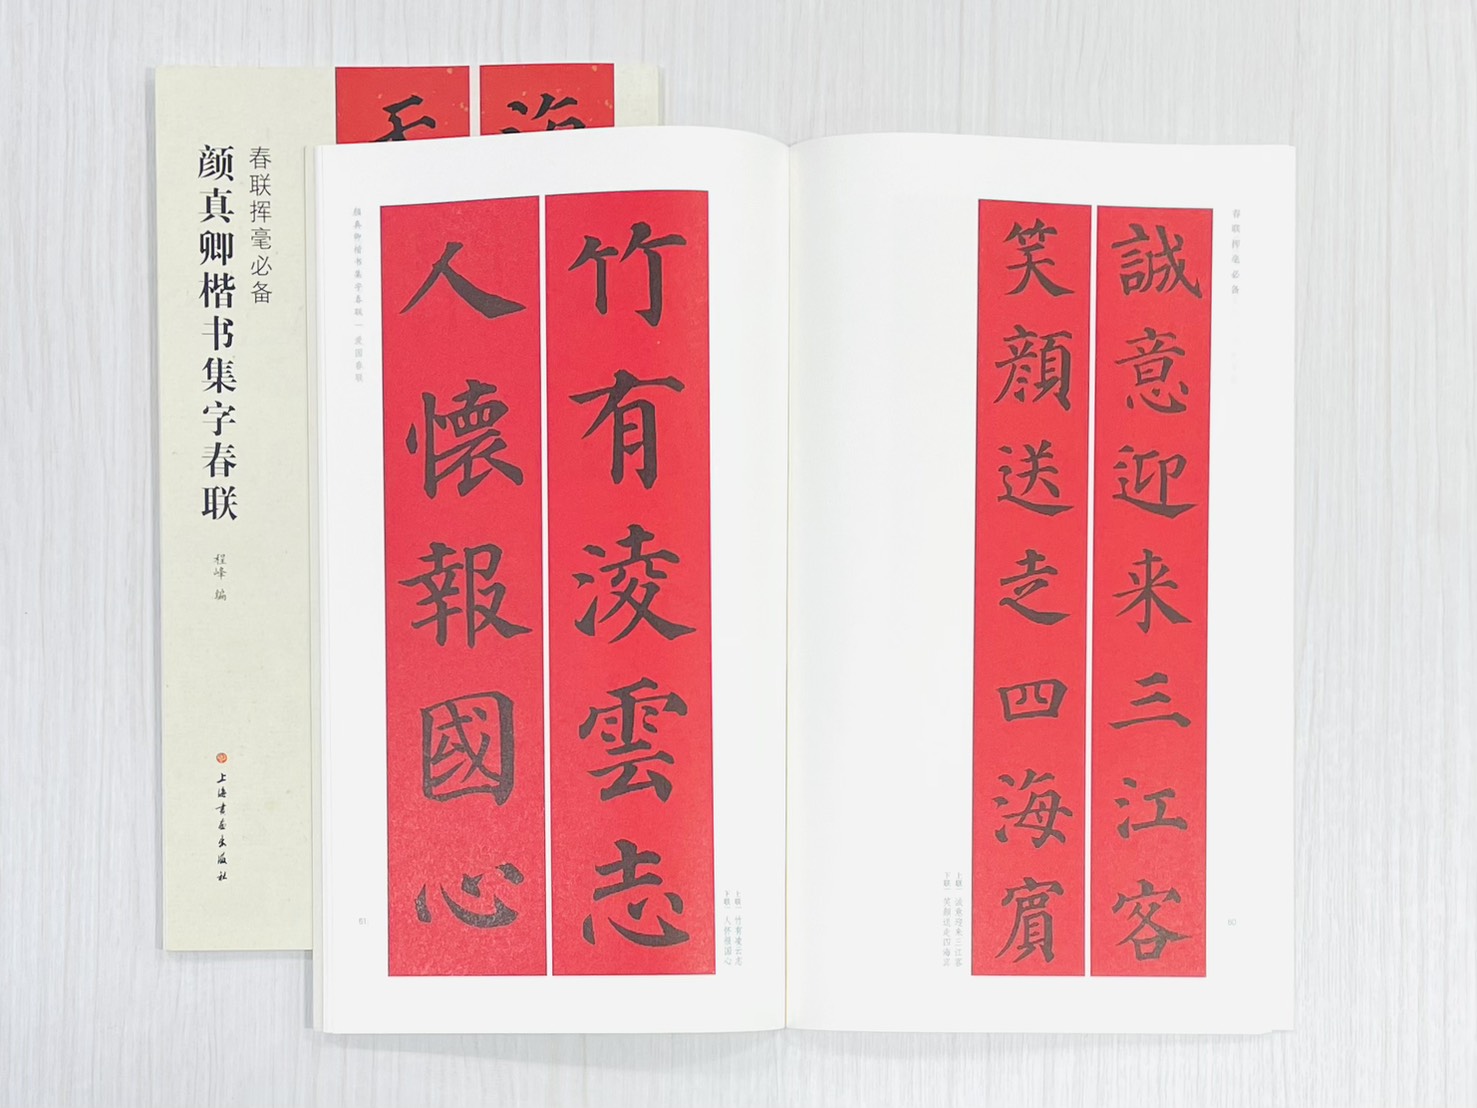 春联挥毫必备
颜真卿楷书集字春联
程峰 编
上海书画出版社
春联挥毫必备
誠意迎来三江客
笑顔送走四海賓
上联｜诚意迎来三江客
下联｜笑颜送走四海宾
60
竹有淩雲志
人懷報國心
上联｜竹有凌云志
下联｜人怀报国心
颜真卿楷书集字春联｜爱国春联
61